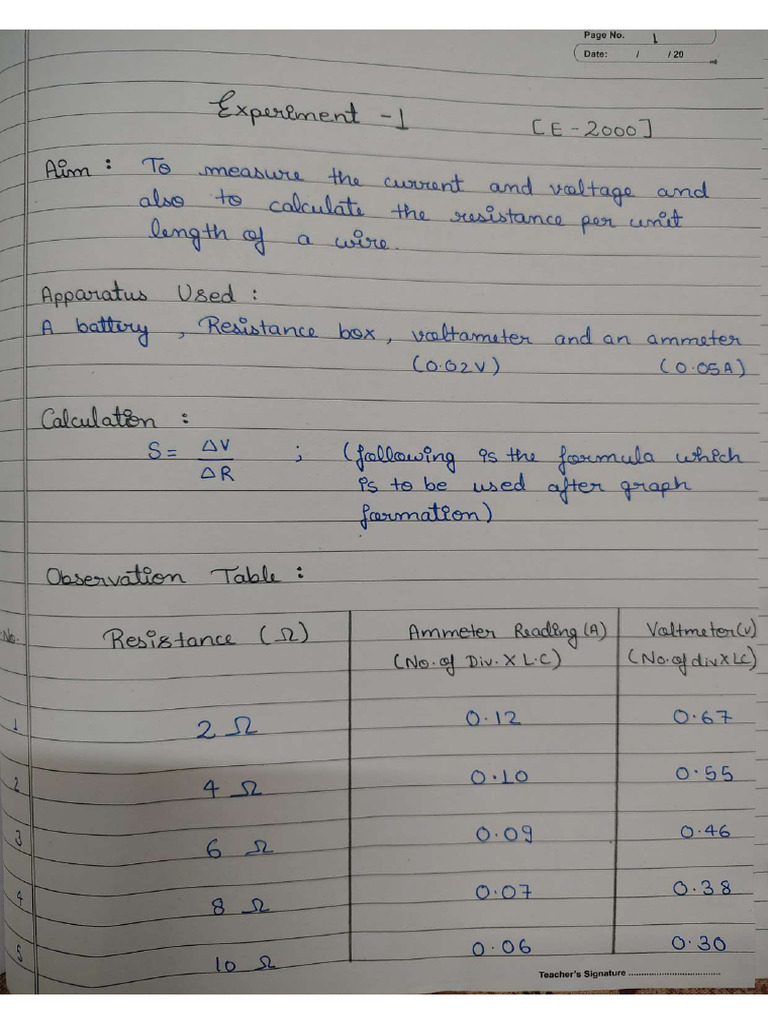 Page No. 1
Date: / / 20
Experiment - 1 [E - 2000]
Aim : To measure the current and voltage and
also to calculate the resistance per unit
length of a wire.
Apparatus Used :
A battery , Resistance box, voltameter and an ammeter
(0.02V) (0.05A)
Calculation :
S = ΔV/ΔR ; (following is the formula which
is to be used after graph
formation)
Observation Table :
S.No. Resistance (Ω) Ammeter Reading (A) Voltmeter (V)
(No. of Div. X L.C) (No. of div X LC)
1 2 Ω 0.12 0.67
2 4 Ω 0.10 0.55
3 6 Ω 0.09 0.46
4 8 Ω 0.07 0.38
5 10 Ω 0.06 0.30
Teacher's Signature